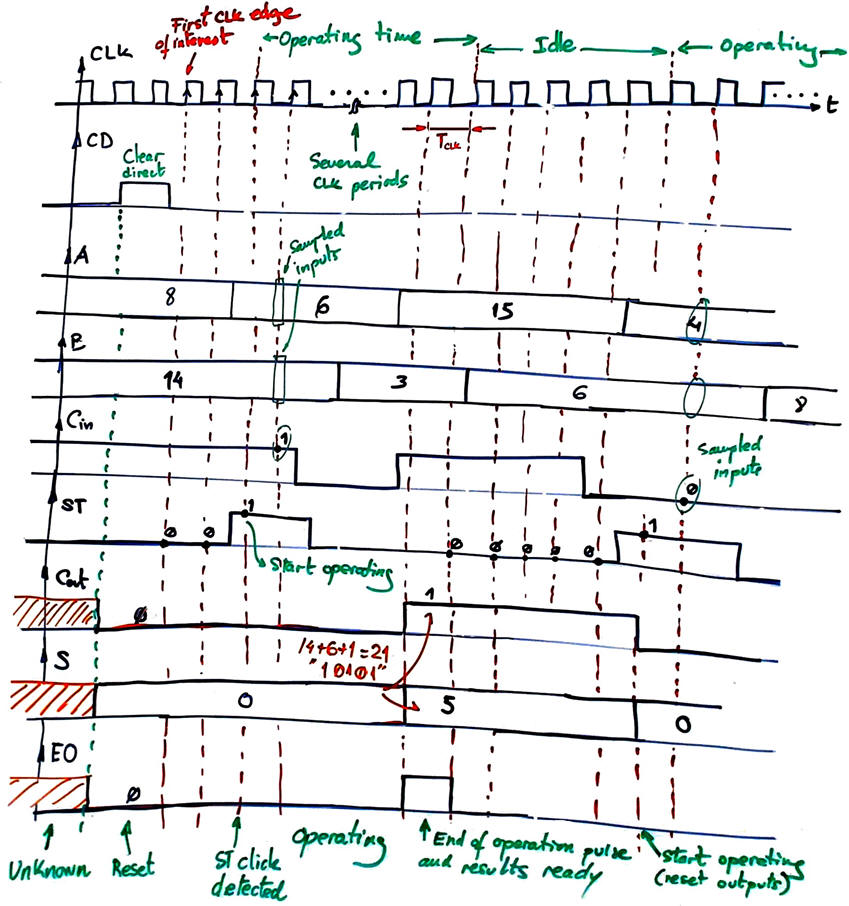 First CLK edge
of interest
Operating time
Idle
Operating
CLK
t
TCLK
Several
CLK periods
CD
Clear
direct
Sampled
inputs
A
8
6
15
4
B
14
3
6
8
Cin
1
Sampled
inputs
0
ST
0
0
1
0
0
0
0
0
1
Start operating
Cout
0
1
14+6+1=21
"10101"
S
0
5
0
EO
0
Operating
Unknown
Reset
ST click
detected
End of operation pulse
and results ready
Start operating
(reset outputs)